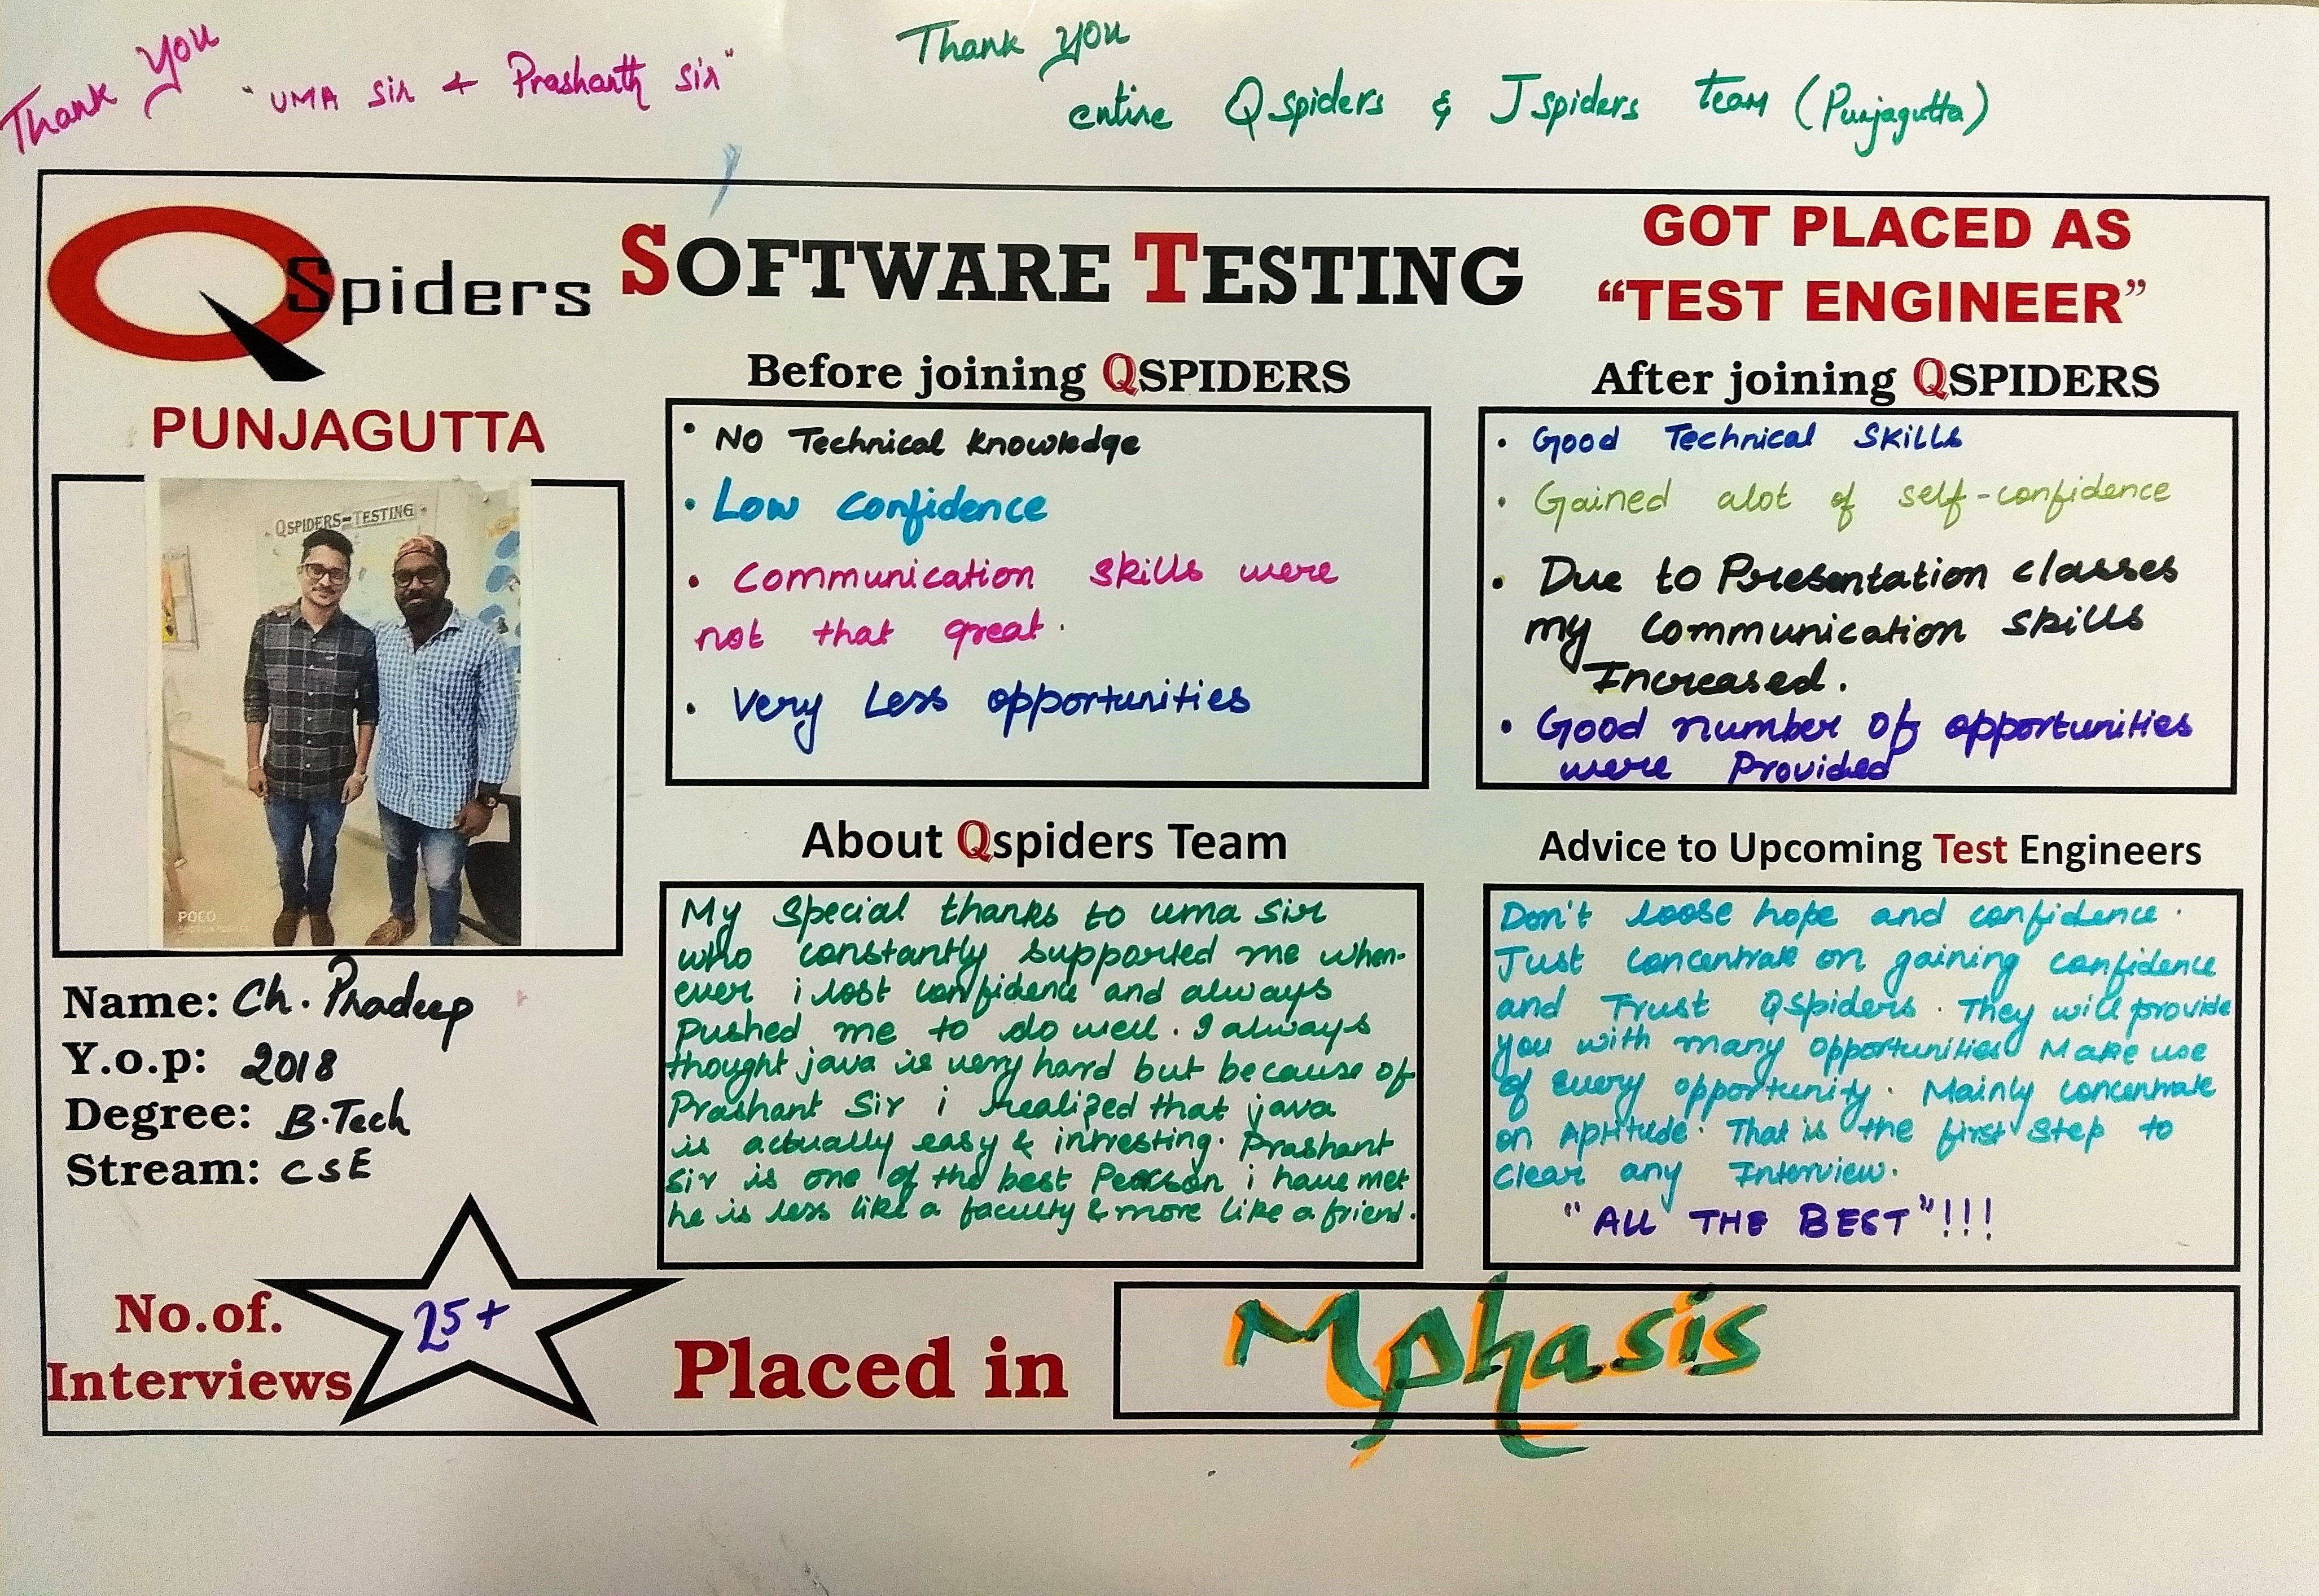 Thank You
"UMA Sir + Prashanth Sir"
Thank you
entire Qspiders & Jspiders Team (Punjagutta)
QSpiders
PUNJAGUTTA
SOFTWARE TESTING
GOT PLACED AS
“TEST ENGINEER”
QSPIDERS-TESTING
POCO
Name: Ch. Pradeep
Y.o.p: 2018
Degree: B.Tech
Stream: CSE
No.of.
Interviews
25+
Before joining QSPIDERS
• NO Technical Knowledge
• Low confidence
• Communication skills were
not that great.
• Very Less opportunities
After joining QSPIDERS
• Good Technical Skills
• Gained alot of self-confidence
• Due to Presentation classes
my Communication skills
Increased.
• Good number of opportunities
were Provided
About Qspiders Team
My Special thanks to uma Sir
who constantly supported me when-
ever i lost confidence and always
pushed me to do well. I always
thought java is very hard but because of
Prashant Sir i realized that java
is actually easy & intresting. Prashant
Sir is one of the best Person i have met
he is less like a faculty & more like a friend.
Advice to Upcoming Test Engineers
Don't loose hope and confidence.
Just concentrate on gaining confidence
and Trust QSpiders. They will provide
you with many opportunities Make use
of every opportunity. Mainly concentrate
on Aptitude. That is the first step to
clear any Interview.
"ALL THE BEST"!!!
Placed in
Mphasis